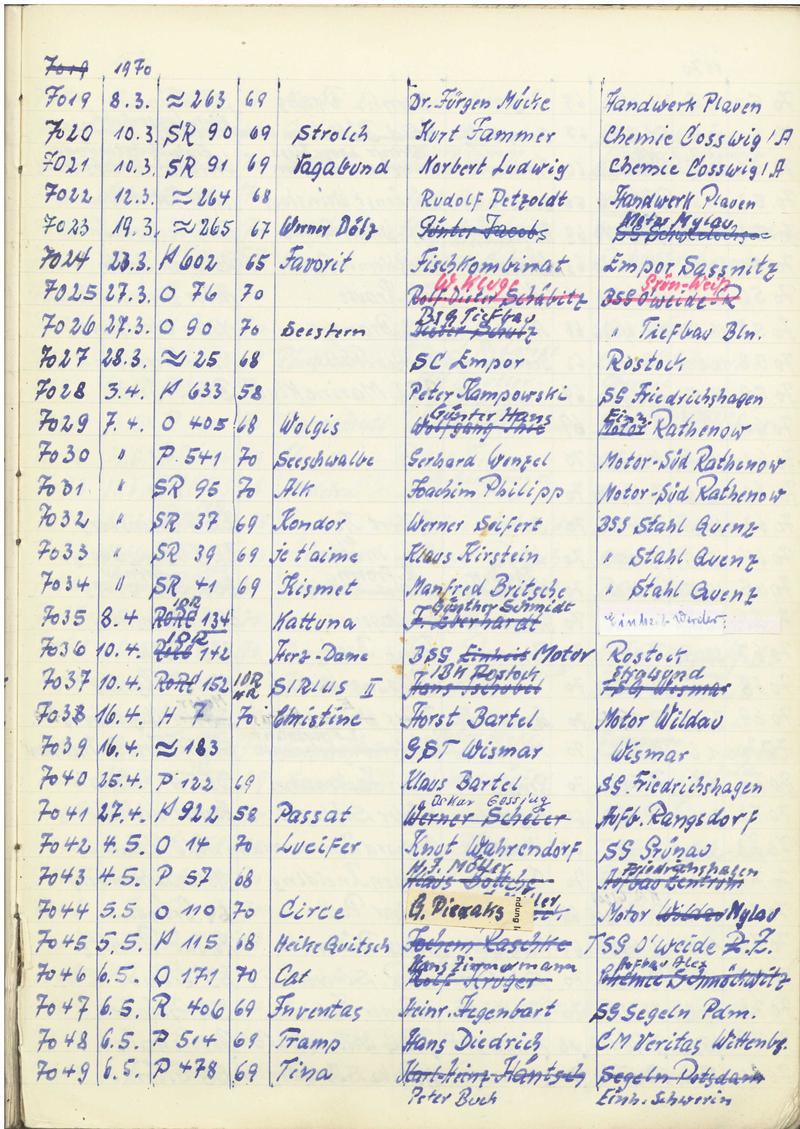 7019 1970
7019 8.3. ≈263 69 Dr. Jürgen Mücke Handwerk Plauen
7020 10.3. SR 90 69 Strolch Kurt Fammer Chemie Cosswig/A
7021 10.3. SR 91 69 Vagabund Norbert Ludwig Chemie Cosswig/A
7022 12.3. ≈264 68 Rudolf Petzoldt Handwerk Plauen
Motas Mylau
7023 19.3. ≈265 67 Werner Dölz Günter Jacobs
7024 23.3. H 602 65 Favorit Fischkombinat Empor Sassnitz
W. Kluge Grün-Weiß
7025 27.3. O 76 70 Rolf-Dieter Schäbitz BSG O'weide R
BSG Tiefbau
7026 27.3. O 90 70 Seestern Dieter Schulz " Tiefbau Bln.
7027 28.3. ≈25 68 SC Empor Rostock
7028 3.4. H 633 58 Peter Kampowski SG Friedrichshagen
Günter Hans Einh.
7029 7.4. O 405 68 Wolgis Wolfgang Thie Motor Rathenow
7030 " P 541 70 Seeschwalbe Gerhard Wenzel Motor-Süd Rathenow
7031 " SR 95 70 Alk Joachim Philipp Motor-Süd Rathenow
7032 " SR 37 69 Kondor Werner Seifert BSG Stahl Quenz
7033 " SR 39 69 je t'aime Klaus Kirstein " Stahl Quenz
7034 " SR 41 69 Kismet Manfred Britsche " Stahl Quenz
10R Günther Schmidt
7035 8.4 134 Kattuna F. Eberhardt Einheit Werder
10R
7036 10.4. 142 Herz-Dame BSG Einheit Motor Rostock
IBH Rostock Stralsund
7037 10.4. 152 10R SIRIUS II Hans Wismar
7038 16.4. H 7 70 Christine Horst Bartel Motor Wildau
7039 16.4. ≈183 GST Wismar Wismar
7040 25.4. P 122 69 Klaus Bartel SG. Friedrichshagen
Oskar Gossjug
7041 27.4. H 922 58 Passat Werner Scheler Aufb. Rangsdorf
7042 4.5. O 14 70 Lucifer Knut Wahrendorf SG Grünau
H.J. Müller Friedrichshagen
7043 4.5. P 57 68 Aufbau Zentrum
7044 5.5 O 110 70 Circe G. Piezaks ler Motor Wildau Mylau
7045 5.5. H 115 68 Heike Quitsch Jochem Laschke TSG O'weide
Hans Zimmermann Aufbau Alex
7046 6.5. O 171 70 Cat Rolf Krüger Chemie Schmöckwitz
7047 6.5. R 406 69 Juventas Heinr. Hegenbart SG Segeln Pdm.
7048 6.5. P 514 69 Tramp Hans Diedrich C.M Veritas Wittenbg.
7049 6.5. P 478 69 Tina Karl-Heinz Häntsch Segeln Potsdam
Peter Buch Einh. Schwerin